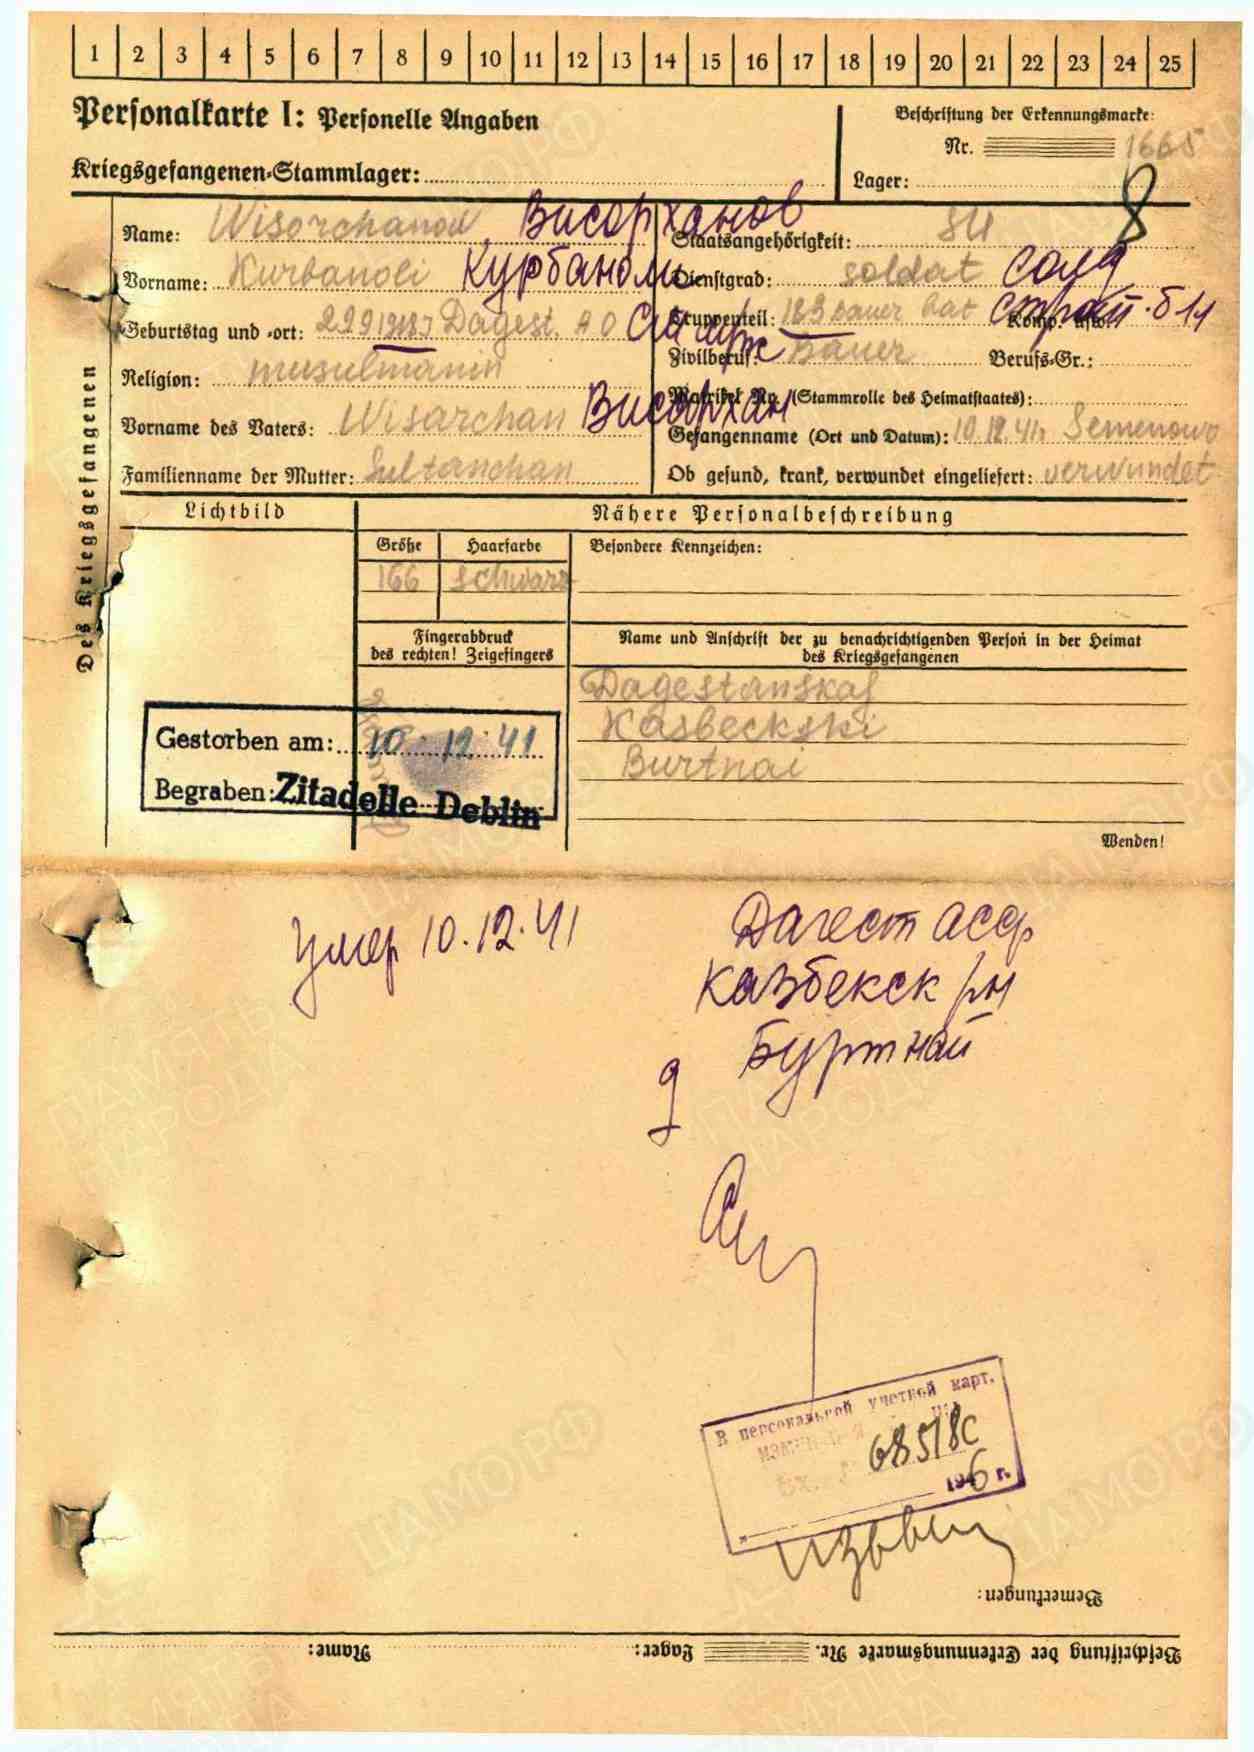 1 2 3 4 5 6 7 8 9 10 11 12 13 14 15 16 17 18 19 20 21 22 23 24 25
Personalkarte I: Personelle Angaben
Beschriftung der Erkennungsmarke:
Nr. 1665
Kriegsgefangenen-Stammlager:
Lager:
8
Des Kriegsgefangenen
Name: Wisorchanow Висорханов
Staatsangehörigkeit: SU
Vorname: Kurbanoli Курбаноли
Dienstgrad: soldat солд
Geburtstag und -ort: Dagest. A O
Truppenteil: 183 bauer bat Komp. usw.: строит. б
Zivilberuf: Bauer Berufs-Gr.:
Religion: musulmanin
Matrikel Nr. (Stammrolle des Heimatstaates):
Vorname des Vaters: Wisarchan Висархан
Gefangenname (Ort und Datum): 10.12.41 Semenowo
Familienname der Mutter: Sultanchan
Ob gesund, krank, verwundet eingeliefert: verwundet
Lichtbild
Nähere Personalbeschreibung
Größe Haarfarbe Besondere Kennzeichen:
166 schwarz
Fingerabdruck
des rechten! Zeigefingers
Name und Anschrift der zu benachrichtigenden Person in der Heimat
des Kriegsgefangenen
Dagestanskaj
Kasbeckski
Burtnai
Gestorben am: 10 12 41
Begraben: Zitadelle Deblin
Wenden!
Умер 10.12.41
Дагест АССР
Казбекск рн
Буртнай
В персональной учетной карт.
Вх. 68518с
1946 г.
Bemerkungen:
Beschriftung der Erkennungsmarke Nr. Lager: Name: